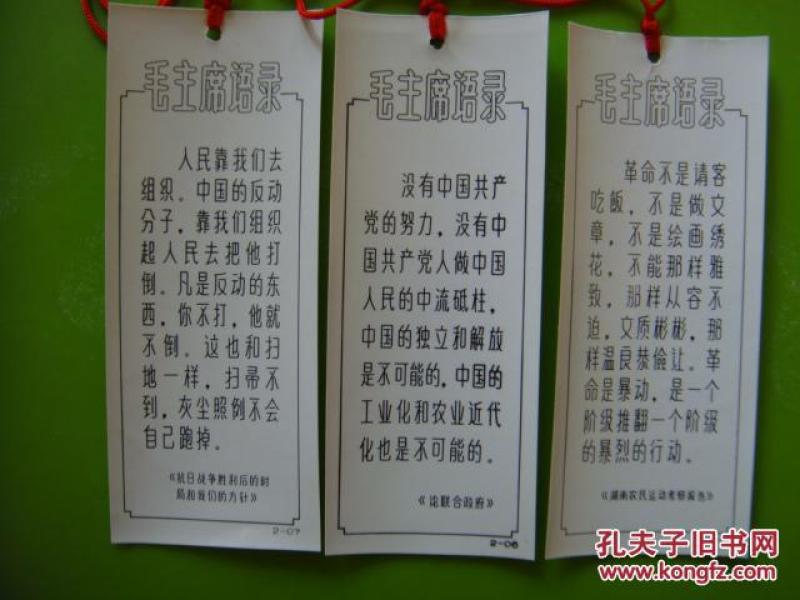 毛主席语录
人民靠我们去
组织。中国的反动
分子，靠我们组织
起人民去把他打
倒。凡是反动的东
西，你不打，他就
不倒。这也和扫
地一样，扫帚不
到，灰尘照例不会
自己跑掉。
《抗日战争胜利后的时
局和我们的方针》
2-07
毛主席语录
没有中国共产
党的努力，没有中
国共产党人做中国
人民的中流砥柱，
中国的独立和解放
是不可能的，中国的
工业化和农业近代
化也是不可能的。
《论联合政府》
2-06
毛主席语录
革命不是请客
吃飯，不是做文
章，不是绘画绣
花，不能那样雅
致，那样从容不
迫，文质彬彬，那
样温良恭儉让。革
命是暴动，是一个
阶级推翻一个阶级
的暴烈的行动。
《湖南农民运动考察报告》
孔夫子旧书网
www.kongfz.com